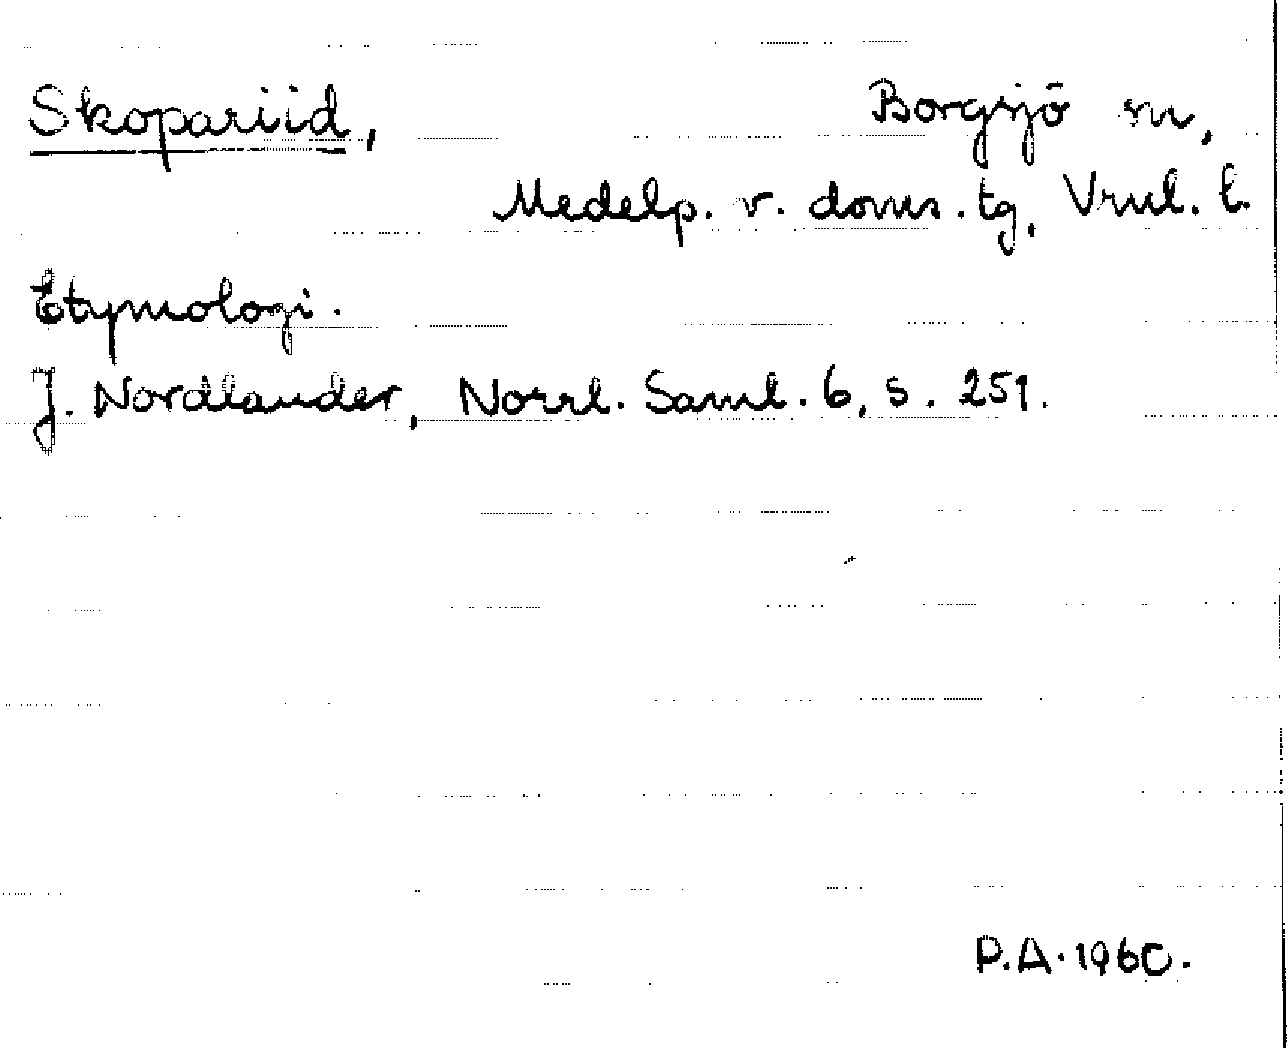 Skopariid, Borgsjö sn,
Medelp. v. doms. tg, Vrnl. l.
Etymologi.
J. Nordlander, Norrl. Saml. 6, s. 251.
P.A. 1960.